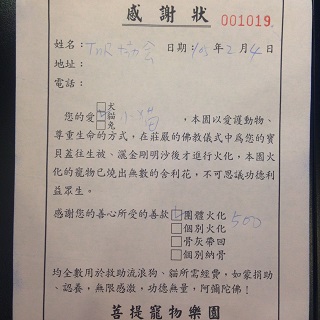 感謝狀
001019
姓名：TNR協會 日期：105年2月4日
地址：
電話：
您的愛 犬 貓 兔 小橘，本園以愛護動物、
尊重生命的方式，在莊嚴的佛教儀式中為您的寶
貝蓋往生被、灑金剛明沙後才進行火化，本園火
化的寵物已燒出無數的舍利花，不可思議功德利
益眾生。
感謝您的善心所受的善款 團體火化 500
個別火化
骨灰帶回
個別納骨
均全數用於救助流浪狗、貓所需經費，如蒙捐助
、認養，無限感激，功德無量，阿彌陀佛！
菩提寵物樂園